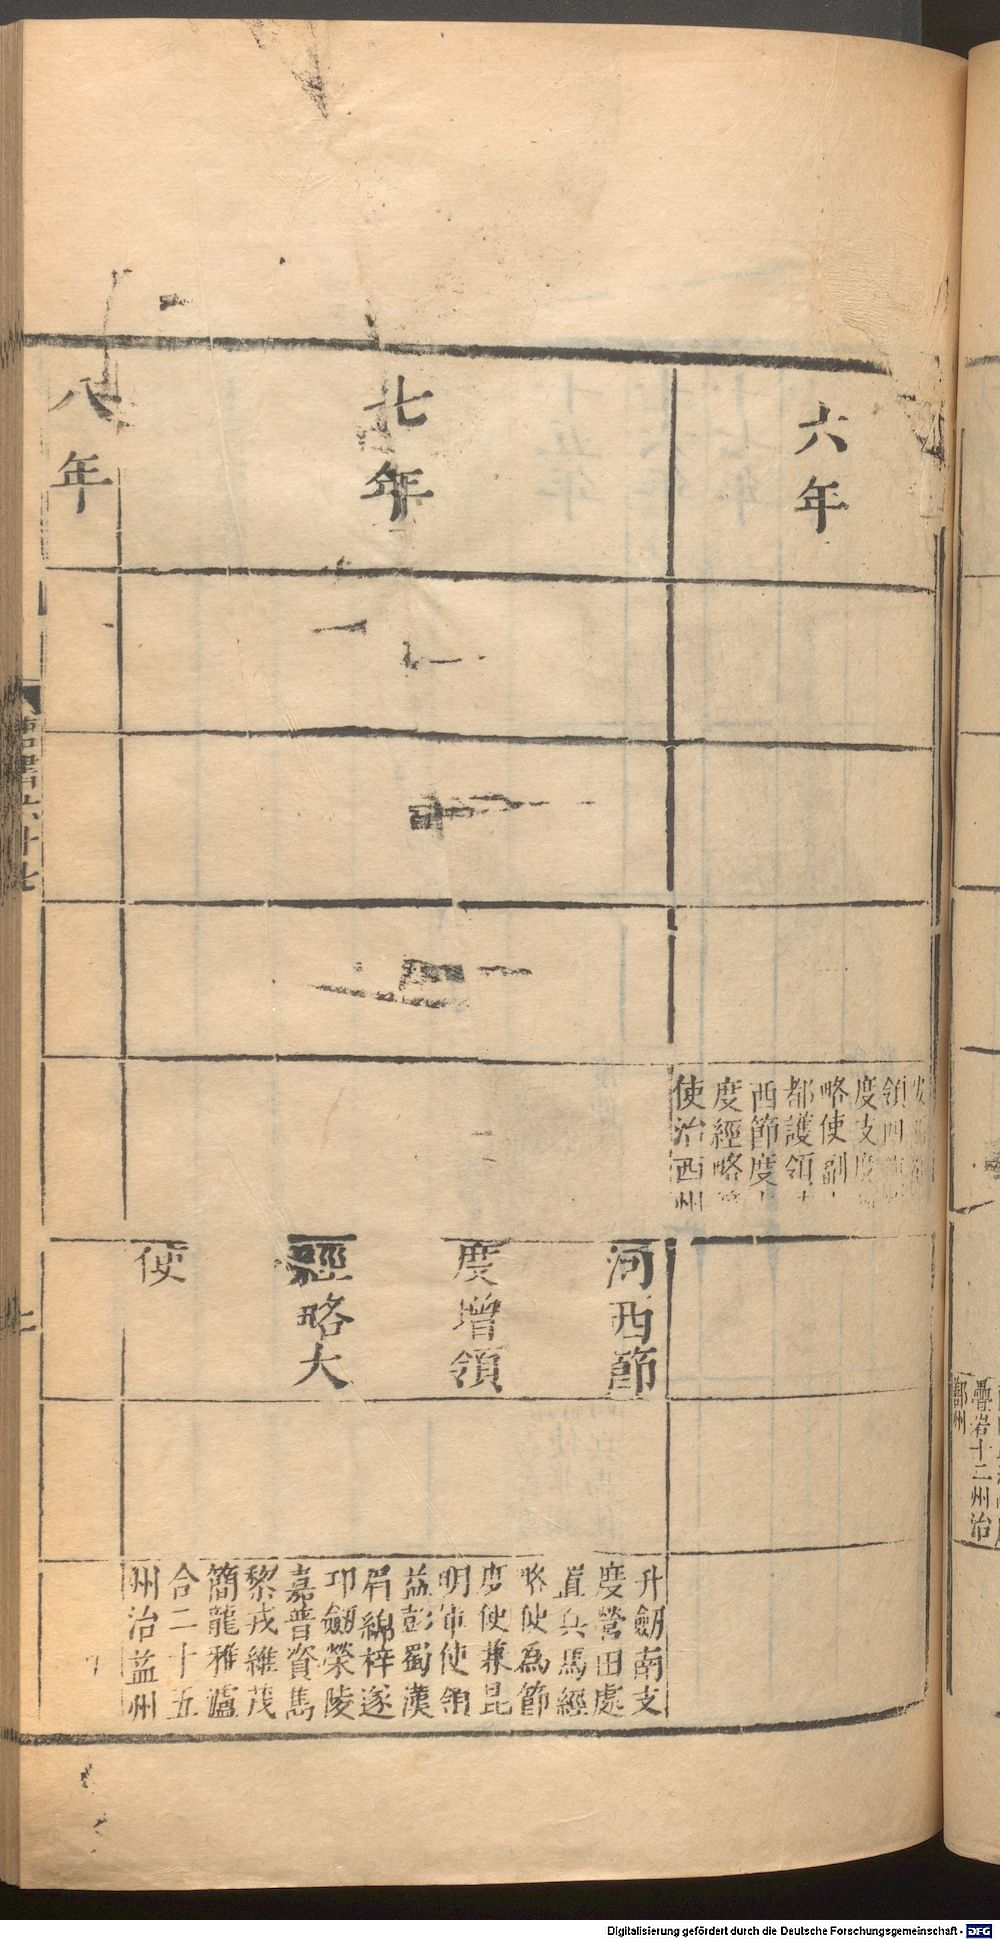 疊宕十二州治
鄯州
六年
領四
度支度
略使副
都護領
西節度
度經略
使治西州
七年
河西節
度增領
經略大
使
升劒南支
度營田處
置兵馬經
略使為節
度使兼昆
明軍使領
益彭蜀漢
眉綿梓遂
卭劒榮陵
嘉普資巂
黎戎維茂
簡龍雅瀘
合二十五
州治益州
八年
唐書六十七
Digitalisierung gefördert durch die Deutsche Forschungsgemeinschaft - DFG